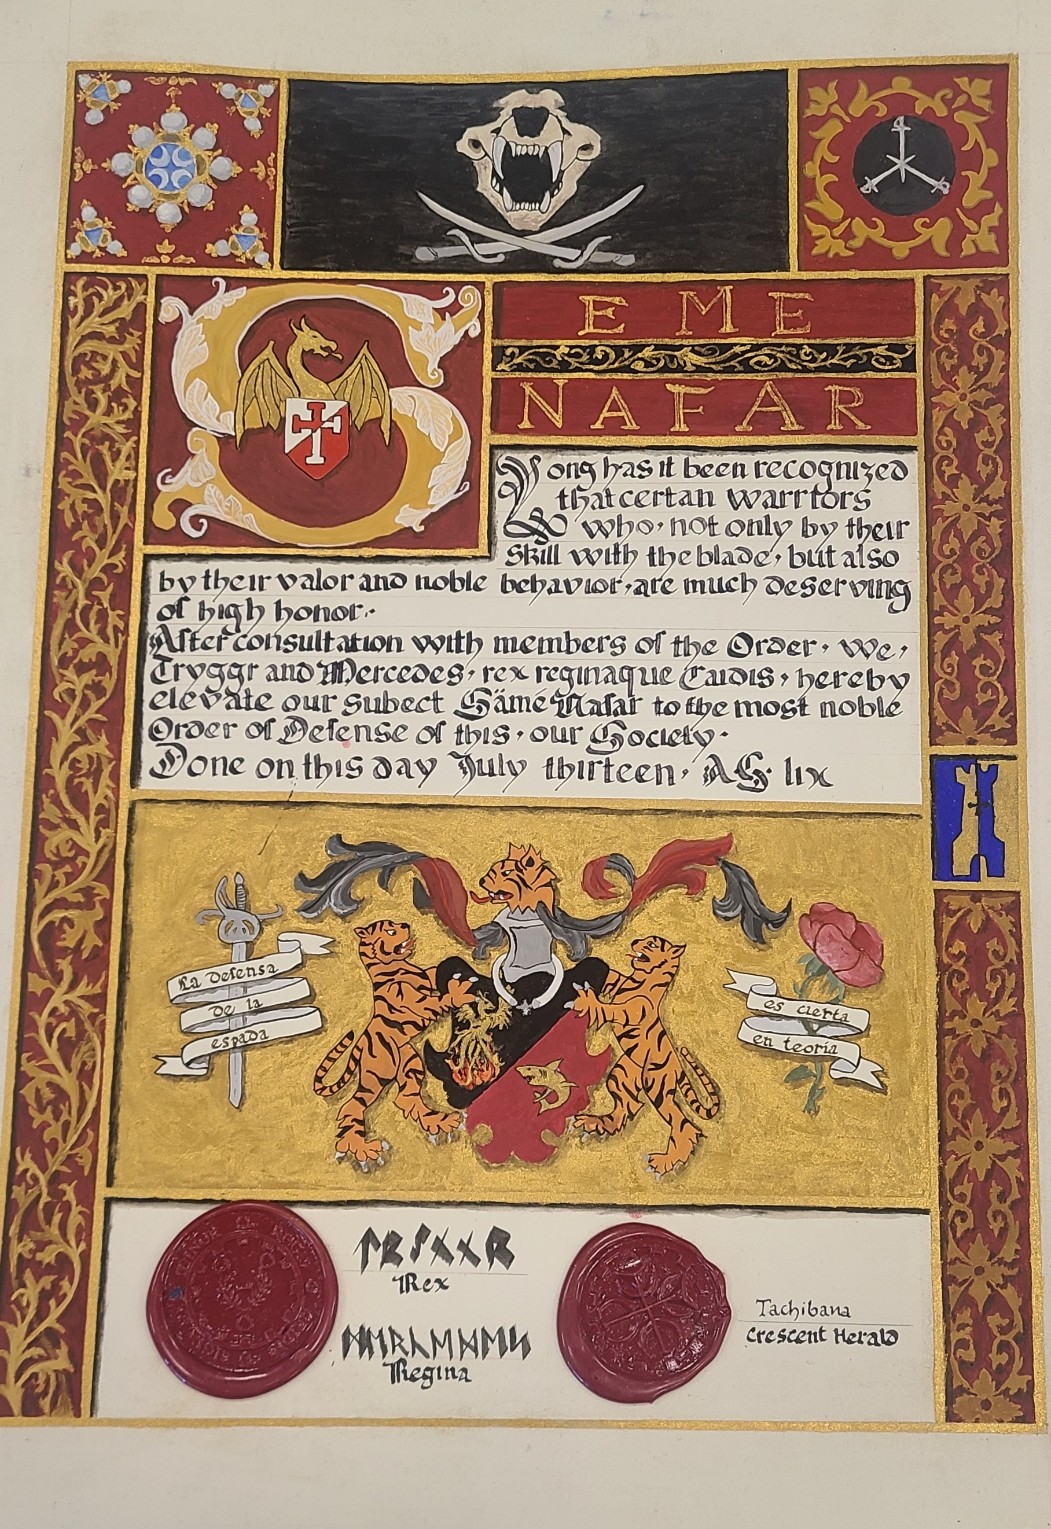 S EME
NAFAR
Long has it been recognized
that certan warriors
who, not only by their
skill with the blade, but also
by their valor and noble behavior, are much deserving
of high honor.
After consultation with members of the Order, we,
Tryggr and Mercedes, rex reginaque Caidis, hereby
elevate our subect Sämé Nafar to the most noble
Order of Defense of this, our Society.
Done on this day July thirteen, AS lix
La Defensa
De la
espada
es cierta
en teoria
Rex
Regina
Tachibana
Crescent Herald